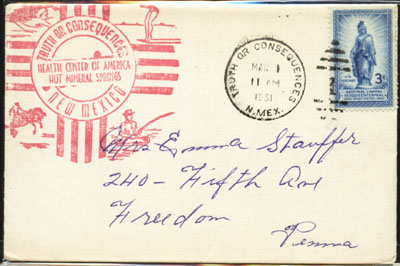 TRUTH OR CONSEQUENCES
HEALTH CENTER OF AMERICA
HOT MINERAL SPRINGS
NEW MEXICO
TRUTH OR CONSEQUENCES
MAR 1
11 AM
1951
N. MEX.
3¢
NATIONAL CAPITAL
SESQUICENTENNIAL
Mrs Emma Stauffer
240- Fifth Ave
Freedom
Penna